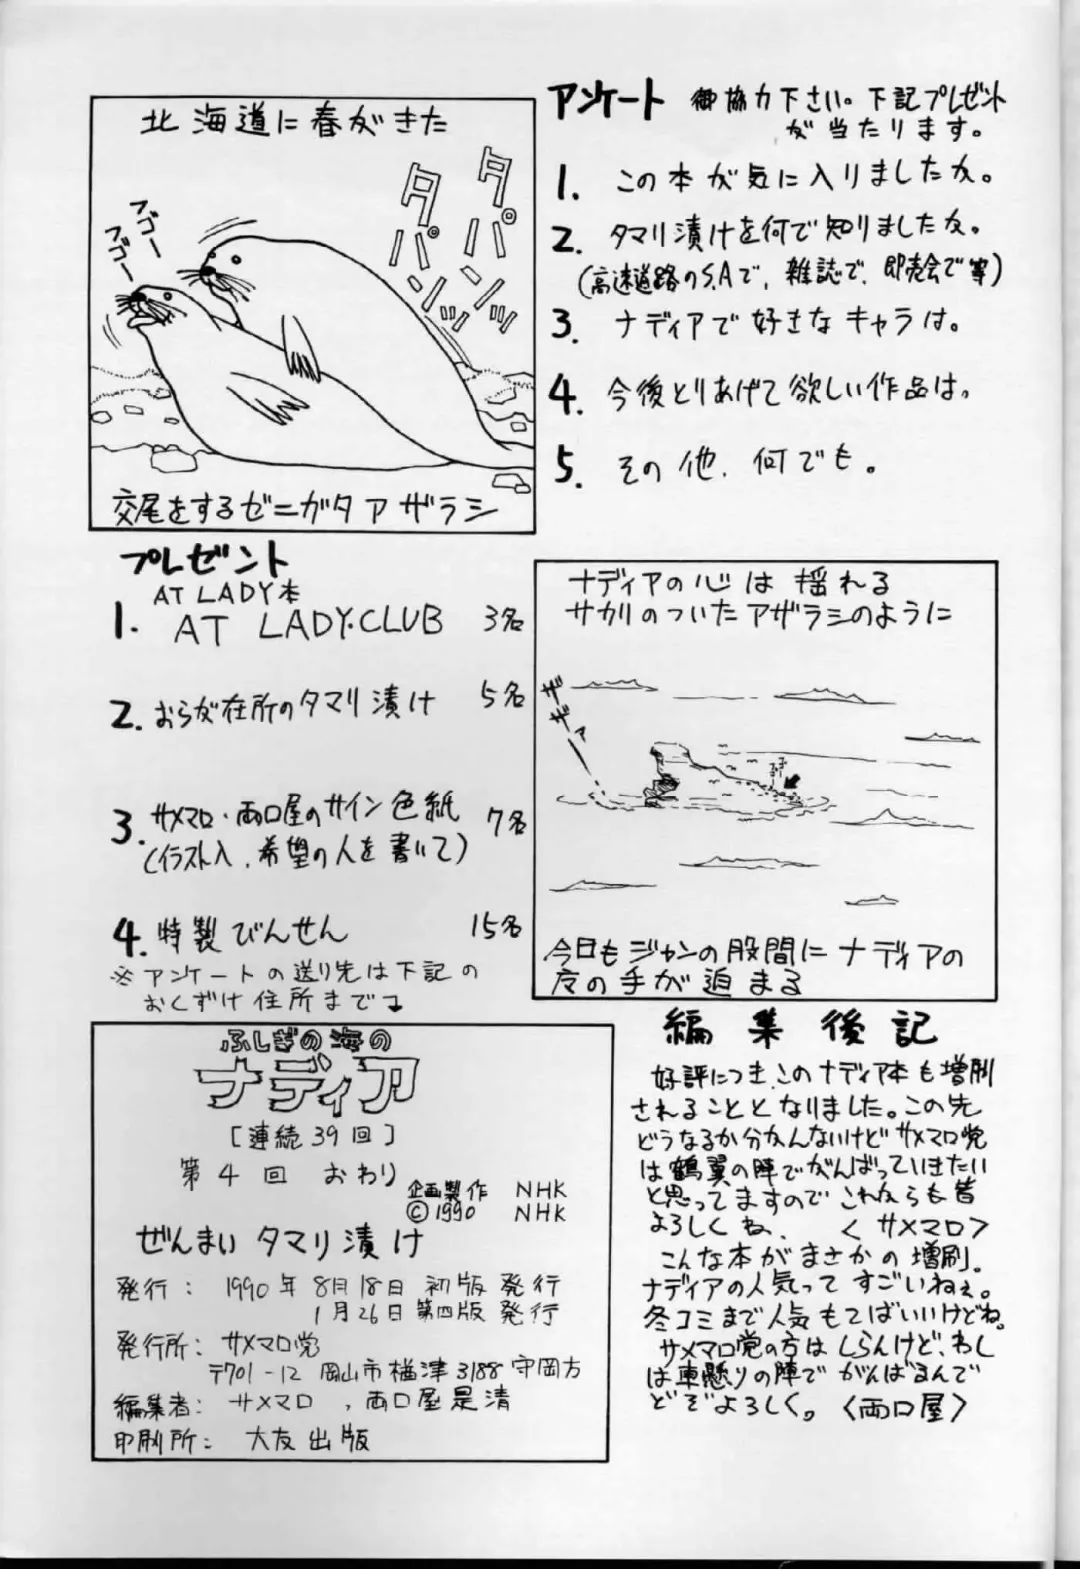 北海道に春がきた
タパンッ
タパンッ
フゴー
フゴー
交尾をするゼニガタアザラシ
アンケート 御協力下さい。下記プレゼント
が当たります。
1. この本が気に入りましたか。
2. タマリ漬けを何で知りましたか。
(高速道路のS,Aで、雑誌で、即売会で等)
3. ナディアで好きなキャラは。
4. 今後とりあげて欲しい作品は。
5. その他、何でも。
プレゼント
AT LADY本
1. AT LADY.CLUB 3名
2. おらが在所のタマリ漬け 5名
3. サメマロ・両口屋のサイン色紙 7名
(イラスト入、希望の人を書いて)
4. 特製びんせん 15名
※アンケートの送り先は下記の
おくずけ住所まで
ナディアの心は揺れる
サカリのついたアザラシのように
ザザァ
今日もジャンの股間にナディアの
の手が迫まる
ふしぎの海の
ナディア
[連続39回]
第4回 おわり
企画製作 NHK
©1990 NHK
ぜんまいタマリ漬け
発行: 1990年8月18日 初版発行
1月26日 第四版発行
発行所: サメマロ党
〒701-12 岡山市楢津3188 守岡方
編集者: サメマロ、両口屋是清
印刷所: 大友出版
編集後記
好評につき、このナディア本も増刷
されることとなりました。この先
どうなるか分かんないけどサメマロ党
は鶴翼の陣でがんばっていきたい
と思ってますのでこれからも皆
よろしくね、 〈サメマロ〉
こんな本がまさかの増刷。
ナディアの人気ってすごいねぇ。
冬コミまで人気もてばいいけどね。
サメマロ党の方はしらんけど、わし
は車懸りの陣でがんばるんで
どぞよろしく。〈両口屋〉